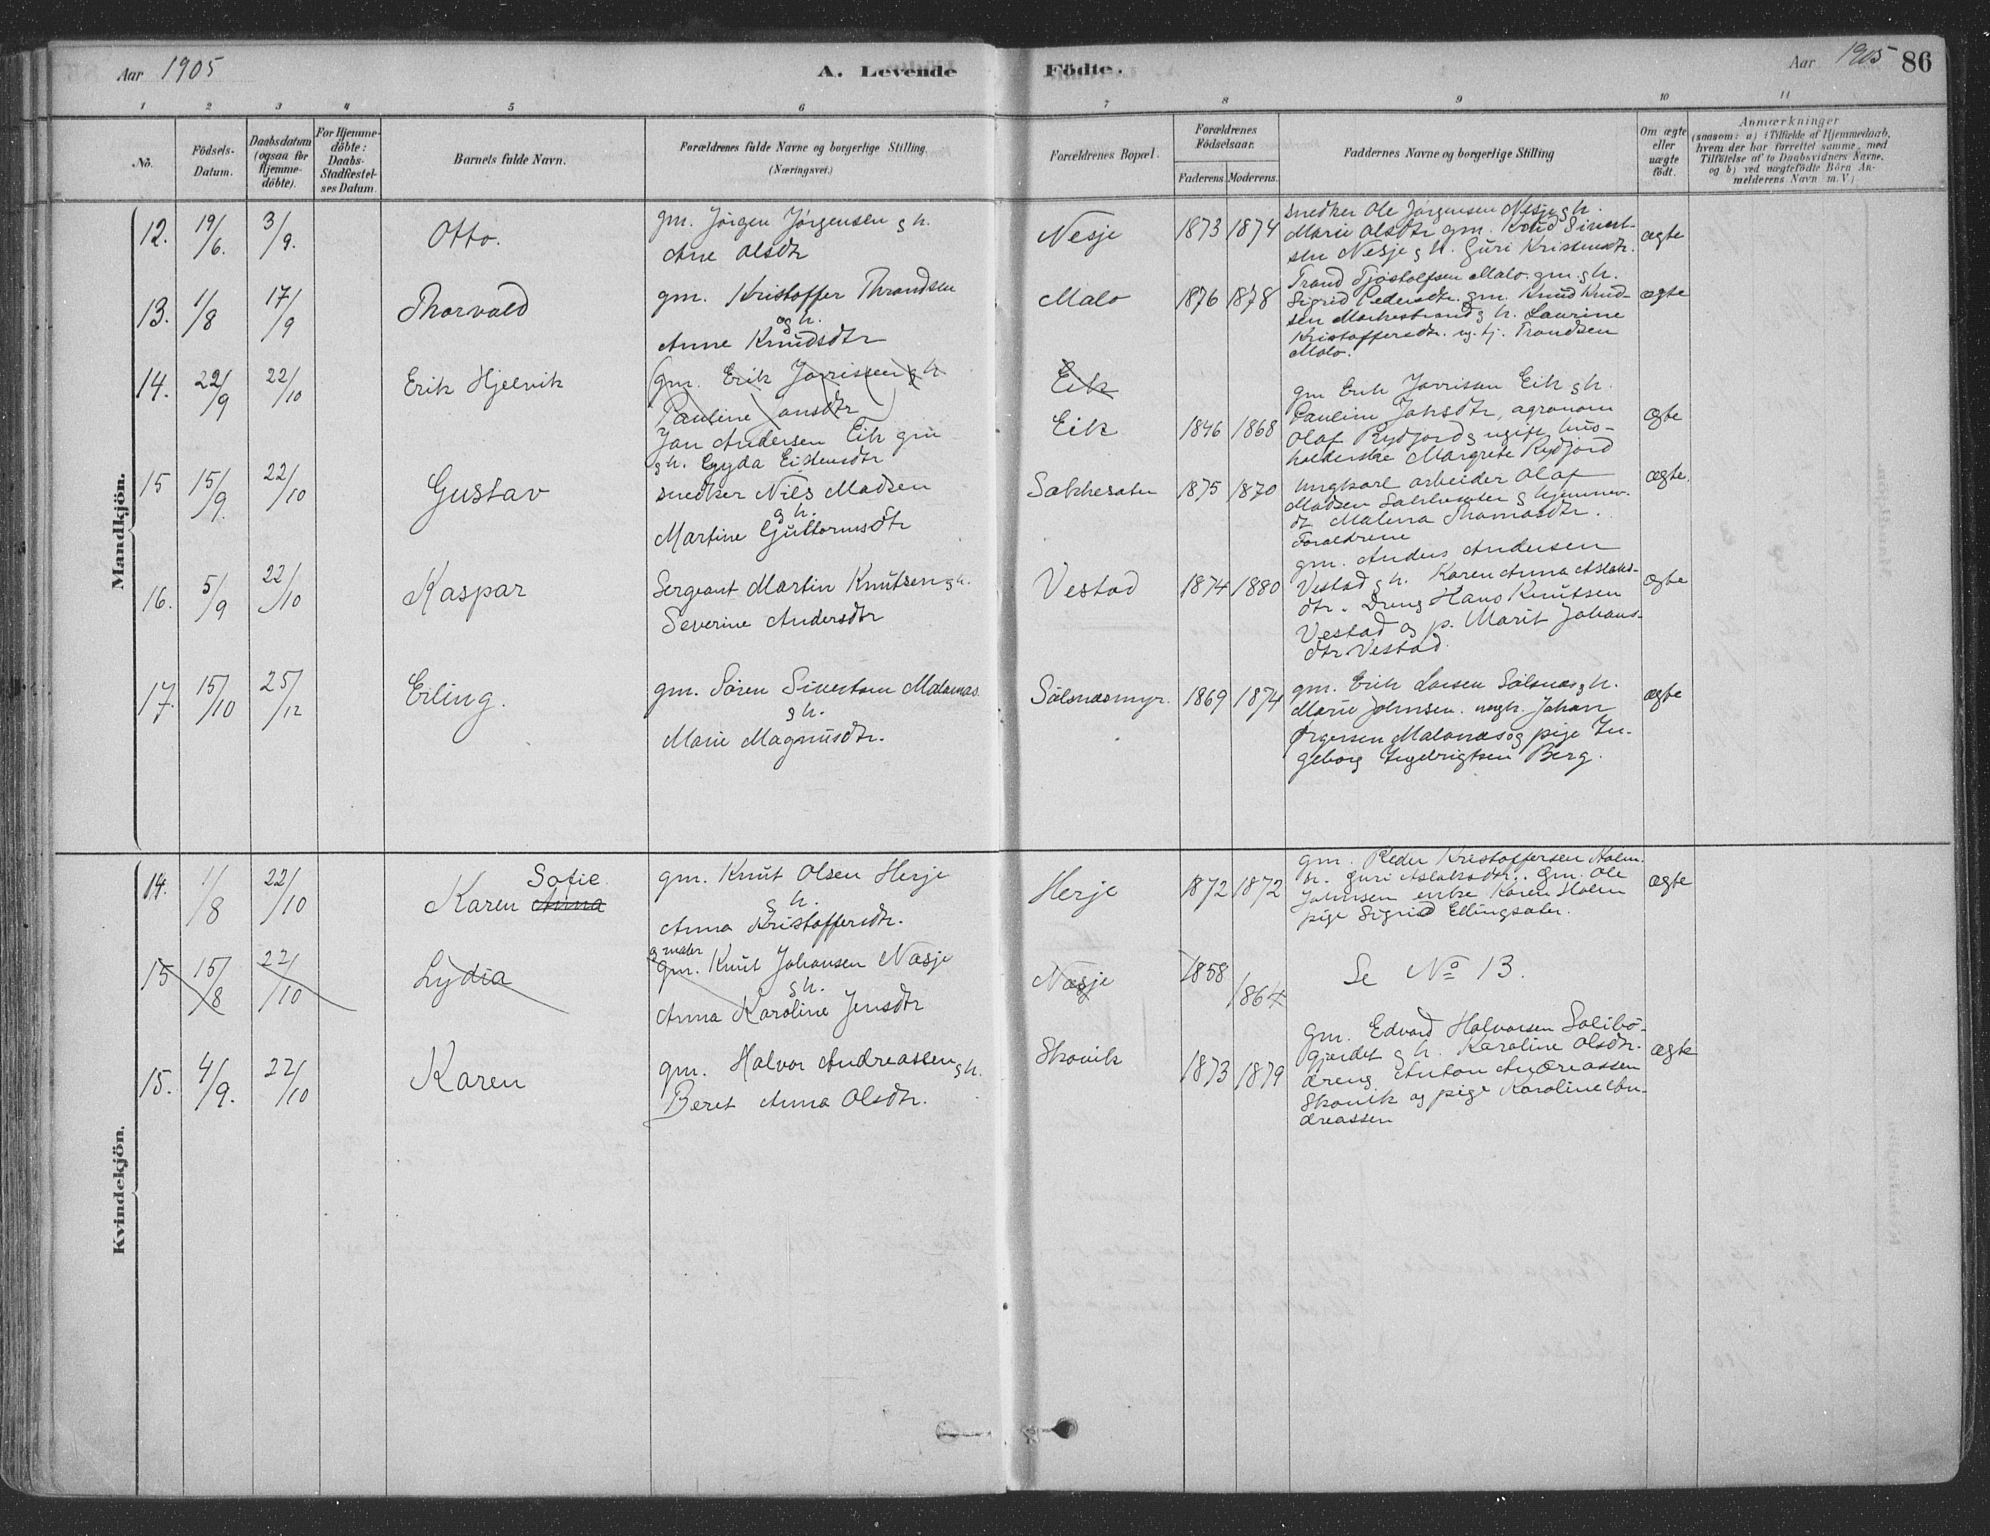 Aar 1905
A. Levende Födte.
Aar 1905 86
1 2 3 4 5 6 7 8 9 10 11
No.
Födsels-
Datum.
Daabsdatum
(ogsaa for
Hjemme-
döbte).
For Hjemme-
döbte:
Daabs-
Stadfæstel-
ses Datum.
Barnets fulde Navn.
Forældrenes fulde Navne og borgerlige Stilling
(Næringsvei.)
Forældrenes Bopæl.
Forældrenes
Födselsaar.
Faderens. Moderens.
Faddernes Navne og borgerlige Stilling
Om ægte
eller
uægte
födt.
Anmærkninger
(saasom: a) i Tilfælde af Hjemmedaab,
hvem der har forrettet samme, med
Tilföielse af to Daabsvidners Navne,
og b) ved uægtefödte Börn An-
melderens Navn m. V.)
Mandkjön.
12. 19/6. 3/9. Otto.
gm. Jørgen Jørgensen g h.
Ane Olsdtr
Nesje 1873 1874
snedker Ole Jørgensen Nesje g h.
Marie Olsdtr gm. Knud Sivert-
sen Nesje g h. Guri Kristensdtr.
ægte
13. 1/8 17/9 Thorvald
gm. Kristoffer Thrandsen
og h.
Anne Knudsdtr
Malo 1876 1878
Trond Tjøstolfsen Malo. gm. g h.
Sigrid Pedersdtr. gm. Knud Knud-
sen Morkestrand g h. Laurine
Kristoffersdtr. ug. tj. Trondsen
Malo.
ægte
14. 22/9 22/10 Erik Hjelvik
(gm. Erik Jovrissen g h
Pauline Jonsdtr)
Jon Andersen Eik gm
g h. Gyda Eidensdtr
Eik
Eik 1846 1868
gm Erik Jovrisen Eik g h.
Pauline Johsdtr, agronom
Olaf Rydjord g ugift hus-
holderske Margrete Rydjord
ægte
15 15/9. 22/10 Gustav
snedker Nils Madsen
g h.
Martine Guttormsdtr
Sækkesæter 1875 1870
ungkarl arbeider Olaf
Madsen Sækkesæter g hjemmev.
dt Malena Thomasdtr.
Forældrene
ægte.
16. 5/9 22/10 Kaspar
Sergeant Martin Knutsen g h.
Severine Andersdtr
Vestad 1874 1880
gm. Anders Andersen
Vestad g h. Karen Anna Aslaks-
dtr. Dreng Hans Knutsen
Vestad og p. Marit Johans-
dtr Vestad.
ægte
17. 15/10 25/12 Erling.
gm. Søren Sivertsen Malonæs.
g h.
Marie Magnusdtr.
Sølsnæsmyr. 1869 1874
gm. Erik Larsen Sølsnæs g h.
Marie Johnsen. ungk. Johan
Ørgersen Malonæs og pige In-
geborg Ingebrigtsen Berg.
ægte
Kvindekjön.
14. 1/8 22/10 Sofie
Karen Anna
gm. Knut Olsen Herje
g h.
Anna Kristoffersdtr.
Herje 1872 1872
gm. Peder Kristoffersen Holm.
h. Guri Aslaksdtr. Gm. Ole
Johnsen enke Karen Holm
pige Sigrid Ellingsæter.
ægte
15 15/8 22/10 Lydia
gm. Knut Johansen Næsje
g h.
Anna Karoline Jensdtr
Næsje 1858 1864
Se No 13.
15. 4/9. 22/10 Karen
gm. Halvor Andreassen g h.
Beret Anna Olsdtr.
Skovik 1873 1879
gm. Edvard Halvorsen Solibø-
gjærdet g h. Karoline Olsdtr.
dreng Anton Andreassen
Skovik og pige Karoline An-
dreassen
ægte